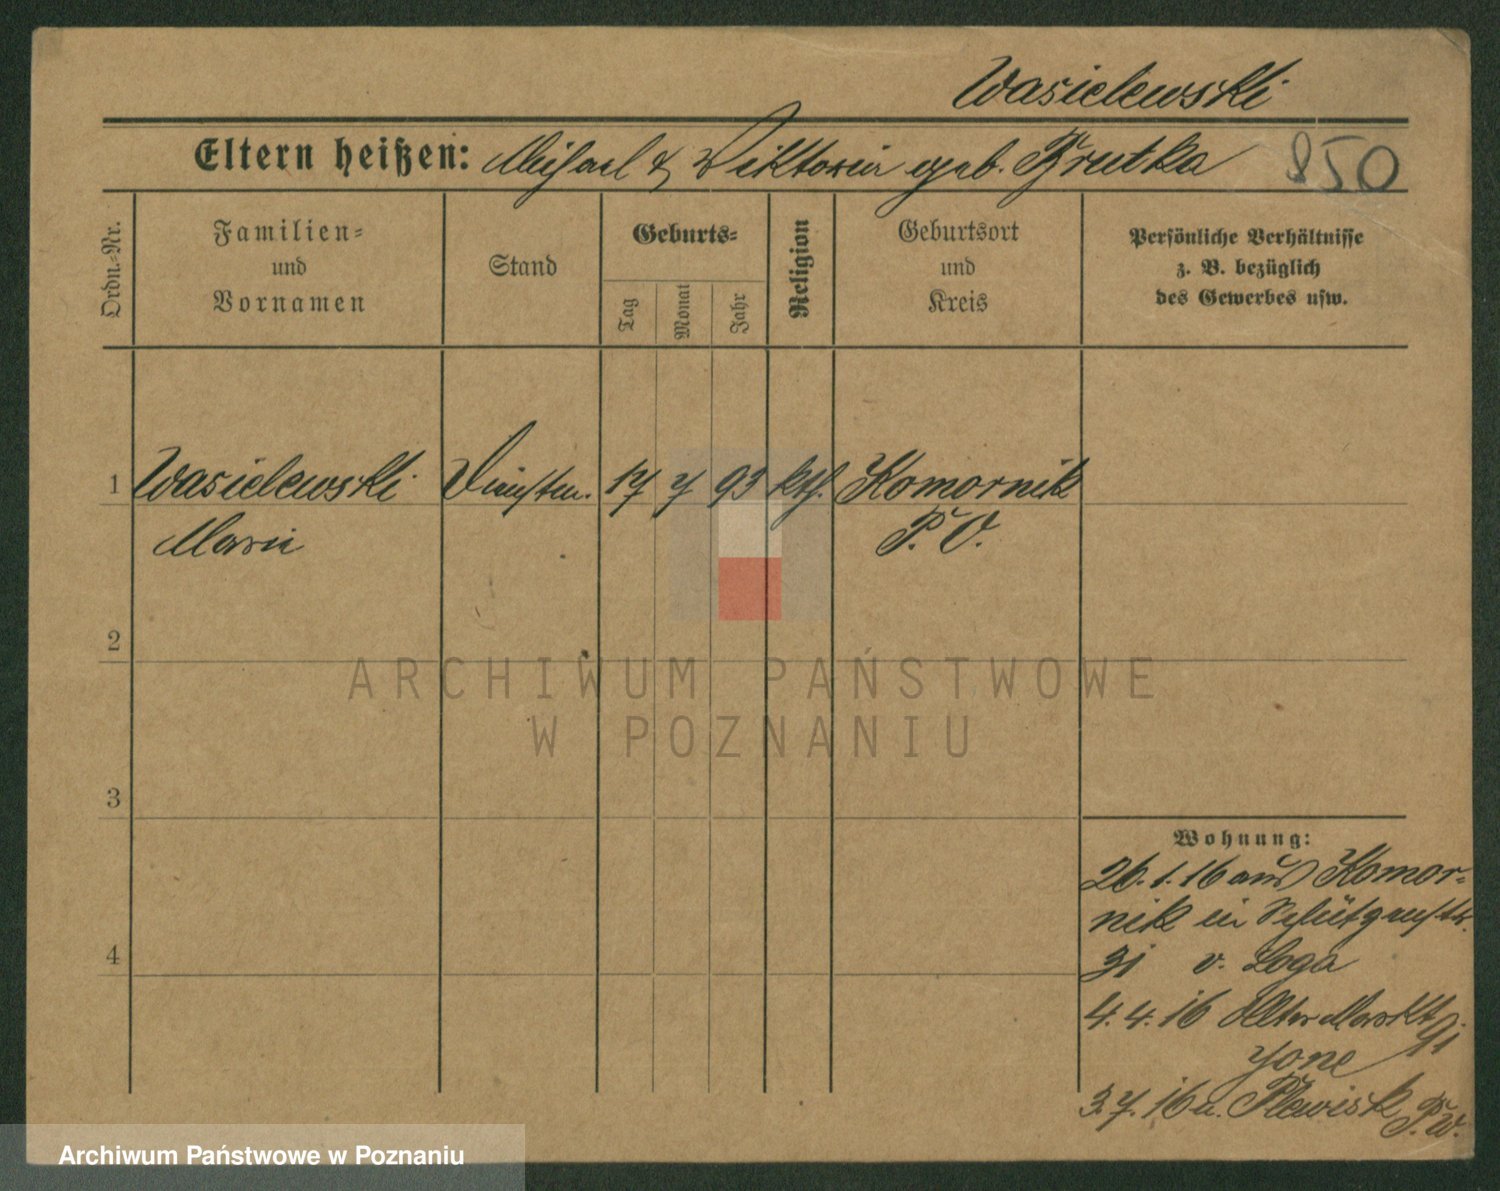 Wasielewski
Eltern heißen: Michael & Viktoria geb. Prutka
850
Ordn.-Nr.
Familien-
und
Vornamen
Stand
Geburts-
Tag
Monat
Jahr
Religion
Geburtsort
und
Kreis
Persönliche Verhältnisse
z. B. bezüglich
des Gewerbes usw.
1 Wasielewski 17 7 93 kth. Komornik
Marie P. O.
2
3
4
Wohnung:
26.1.16 aus Komor-
nik in Schützenstr.
31 v. Loga
4.4.16 Alter Markt 91
3.7.16 n. Plewisk P. W.
ARCHIWUM PAŃSTWOWE
W POZNANIU
Archiwum Państwowe w Poznaniu